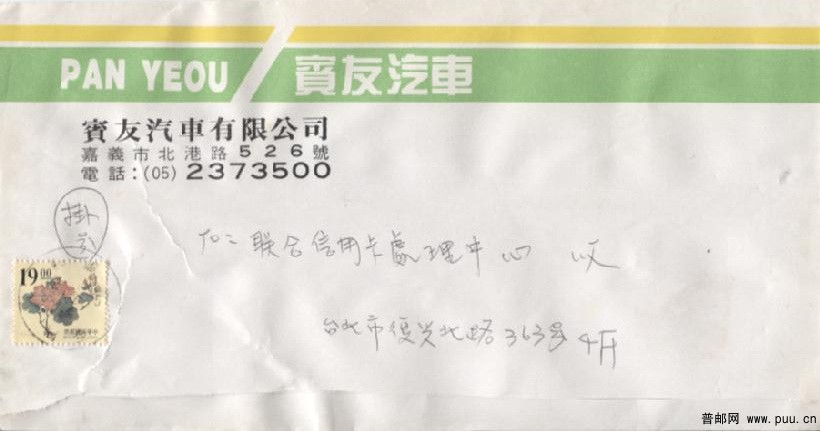 PAN YEOU 賓友汽車
賓友汽車有限公司
嘉義市北港路526號
電話:(05)2373500
掛
19.00
TO: 联合信用卡處理中心 收
台北市復兴北路363号4F
普邮网 www.puu.cn